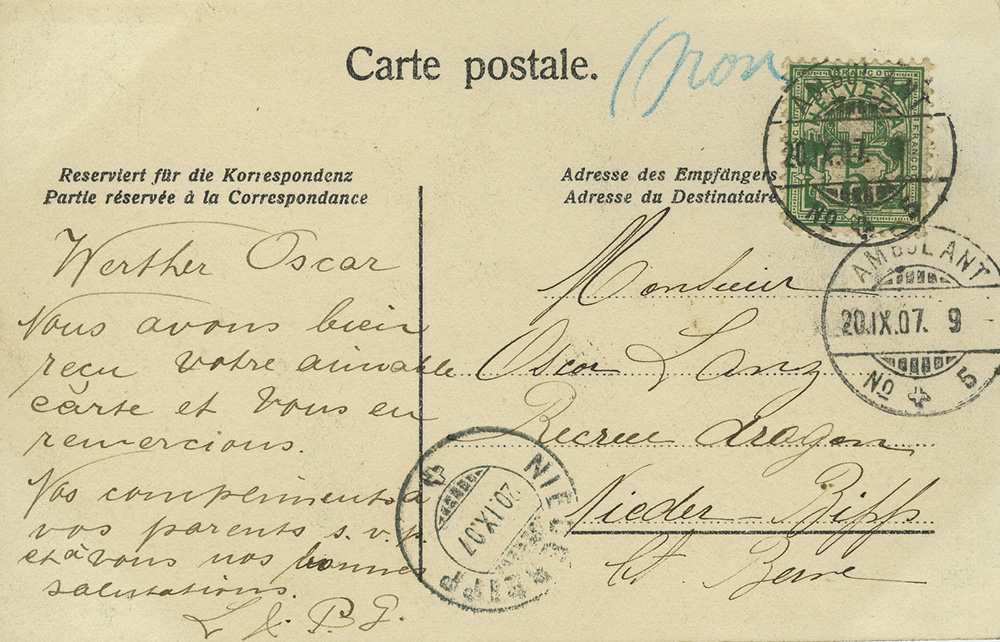 Carte postale.
Reserviert für die Korrespondenz
Partie réservée à la Correspondance
Werther Oscar
Nous avons bien
reçu votre aimable
carte et Vous en
remercions.
Nos compliments à
vos parents s.v.p.
et à vous nos bonnes
salutations.
Adresse des Empfängers
Adresse du Destinataire
Monsieur
Oscar Lanz
Recrue dragon
Nieder-Bipp
Ct. Berne
FRANCO
HELVETIA
FRANCO
5
AMBULANT
20.IX.07. 9
No 5
AMBULANT
20.IX.07. 9
No 5
NIEDERBIPP
20.IX.07